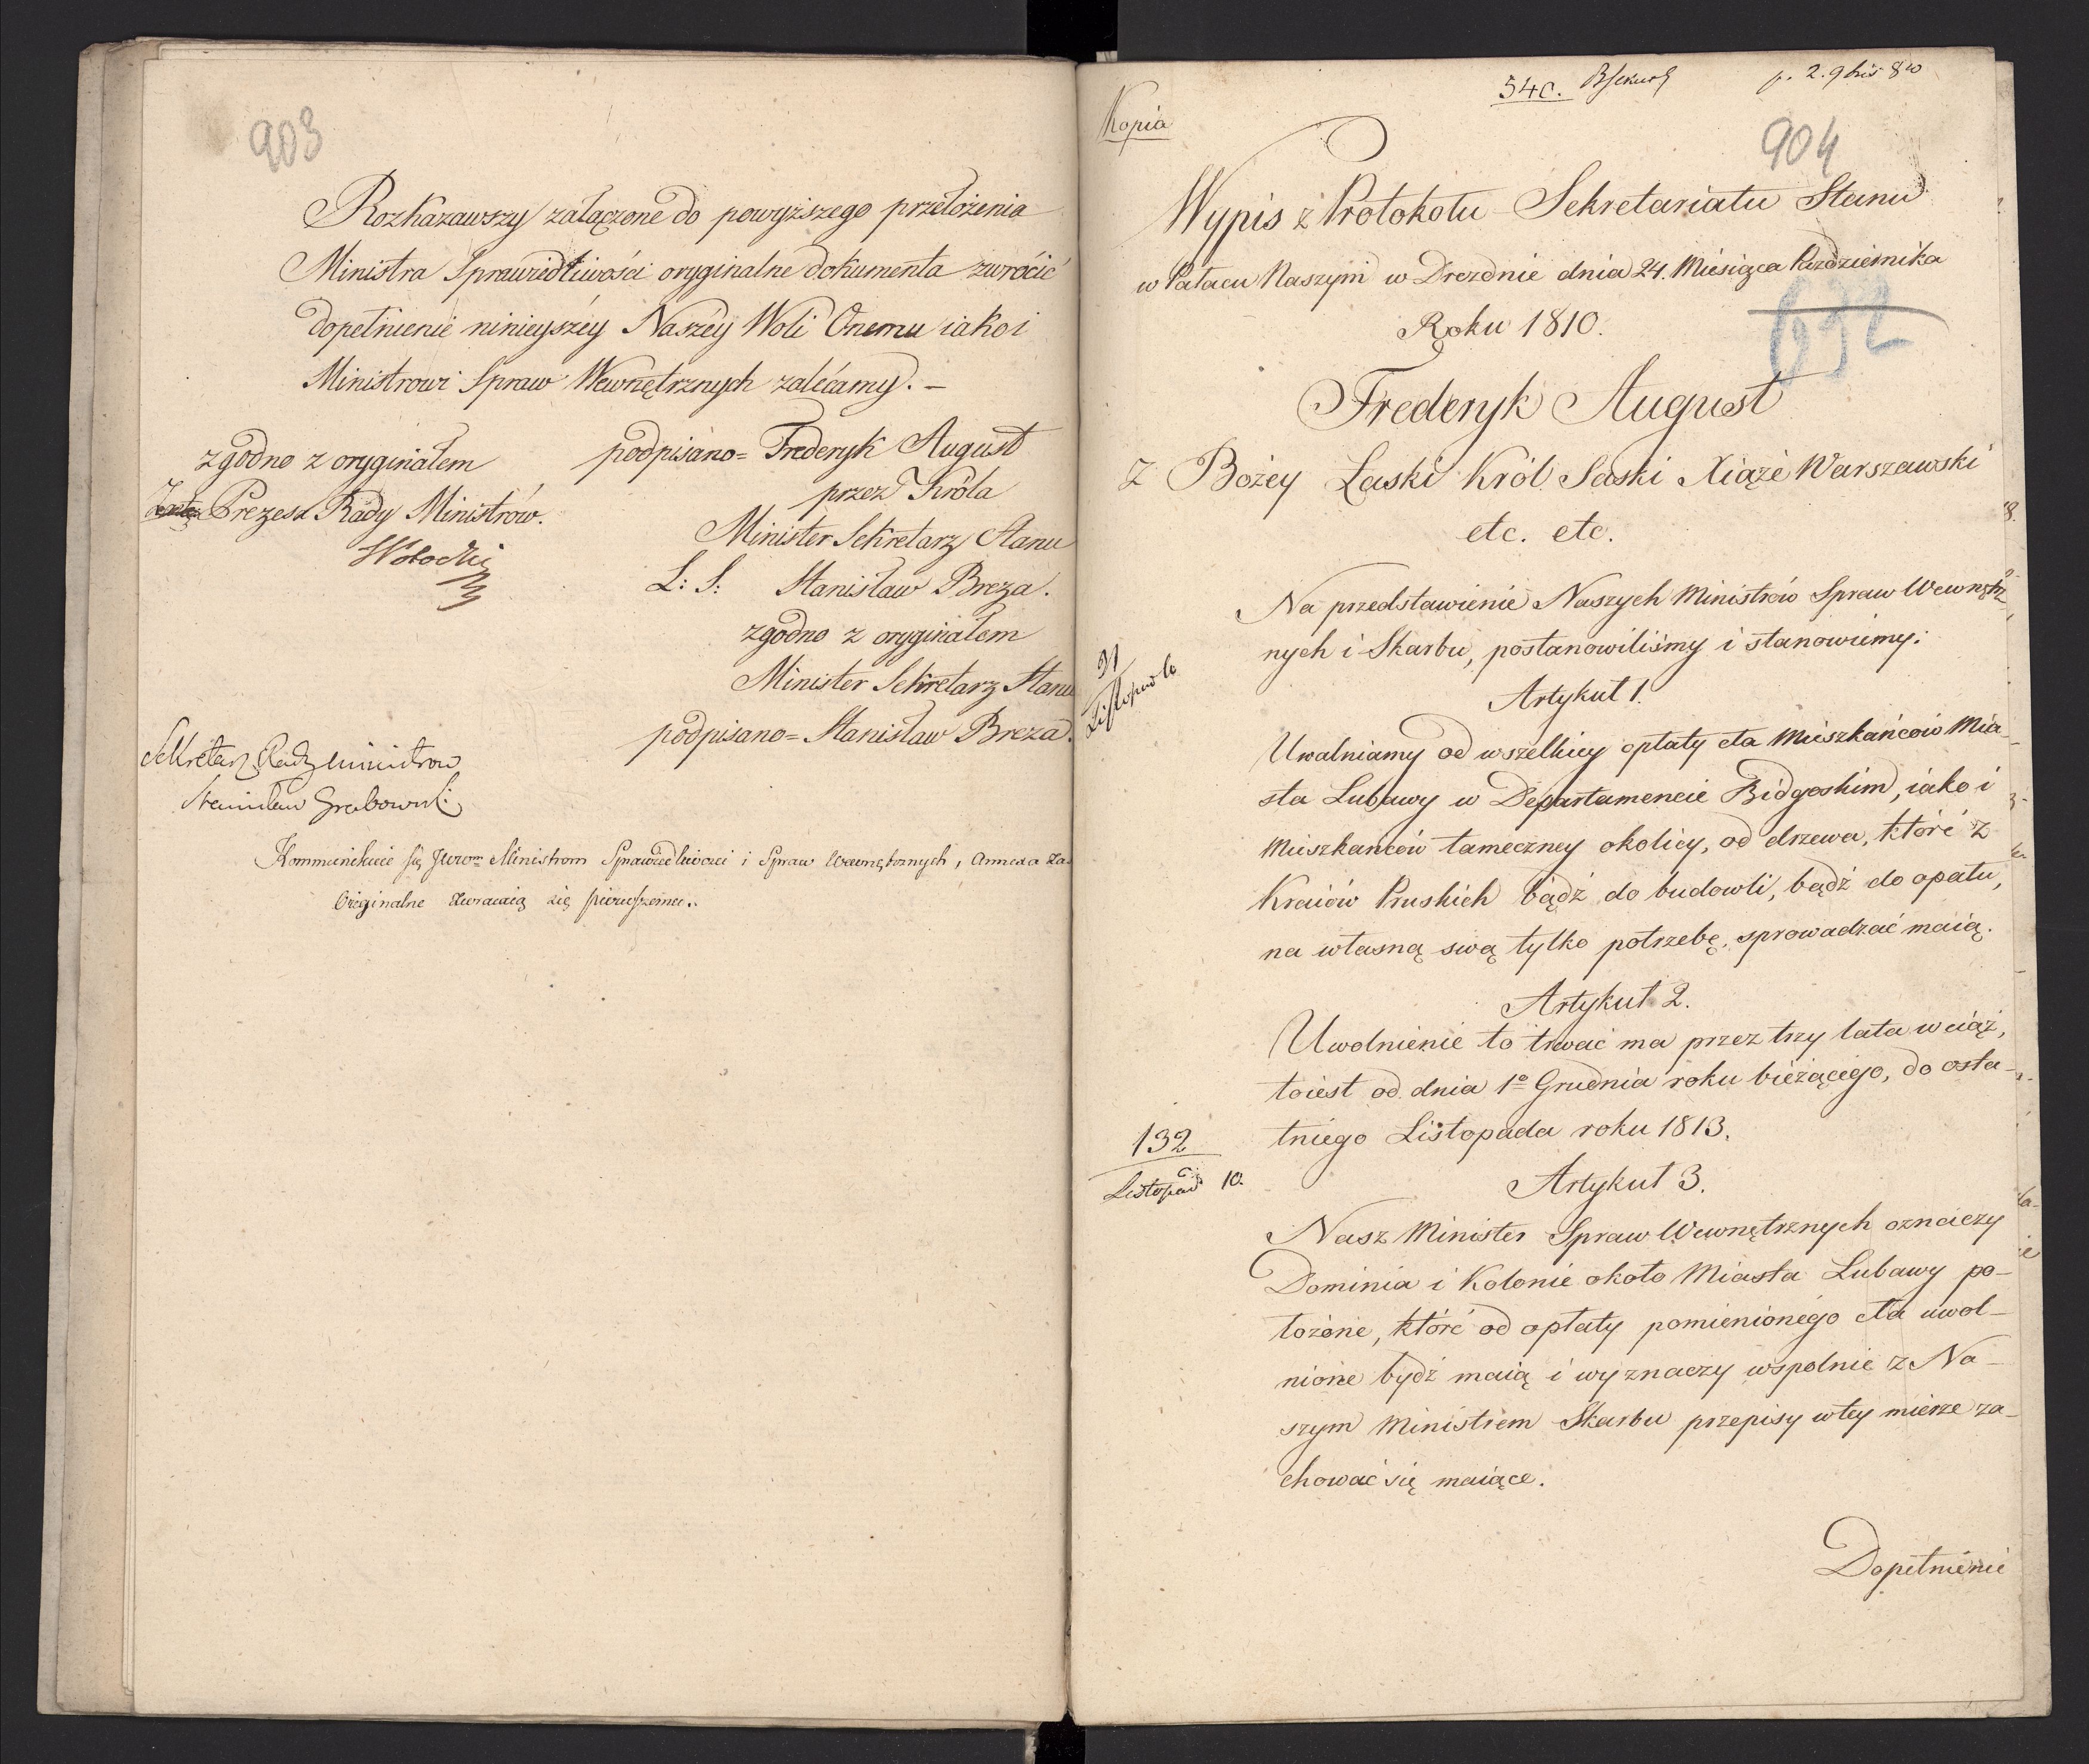 903
Rozkazawszy załączone do powyższego przełożenia
Ministra Sprawiedliwości oryginalne dokumenta zwrócić
dopełnienie ninieyszéy Naszéy Woli Onemu iako i
Ministrowi Spraw Wewnętrznych zalécamy. –
zgodno z oryginałem
Prezesa Rady Ministrów.
podpisano = Frederyk August
przez Króla
Minister Sekretarz Stanu
L: S: Stanisław Breza.
zgodno z oryginałem
Minister Sekretarz Stanu
podpisano = Stanisław Breza.
Sekretarz Rady Ministrow
Stanisław Grabowski
Kommunikuie się Ministrom Sprawiedliwości i Spraw Wewnętrznych, Annexa za
Originalne zwracaią się pierwszemu.
Kopia
540.
904
Wypis z Protokołu Sekretariatu Stanu
w Pałacu Naszym w Dreznie dnia 24. Miesiąca Października
Roku 1810.
632
Frederyk August
Z Bożey Łaski Król Saski Xiąże Warszawski
etc. etc.
Na przedstawienie Naszych Ministrów Spraw Wewnętrz
nych i Skarbu, postanowiliśmy i stanowiemy:
31
Listopad 10
Artykuł 1.
Uwalniamy od wszelkiey opłaty cła Mieszkańców Mia-
sta Lubawy w Departamencie Bidgoskim, iako i
Mieszkańców tameczney okolicy, od drzewa, które z
Kraiów Pruskich bądź do budowli, bądź do opału,
na własną swą tylko potrzebę, sprowadzać maią.
Artykuł 2.
Uwolnienie to trwać ma przez trzy lata wciąż,
toiest od dnia 1o Grudnia roku bieżącego, do osta-
tniego Listopada roku 1813.
132
Listopad 10.
Artykuł 3.
Nasz Minister Spraw Wewnętrznych oznaczy
Dominia i Kolonie około Miasta Lubawy po-
łożone, które od opłaty pomienionego cła uwol-
nione bydź maią i wyznaczy wspolnie z Na-
szym Ministrem Skarbu przepisy wtey mierze za-
chować się maiące.
Dopełnienie